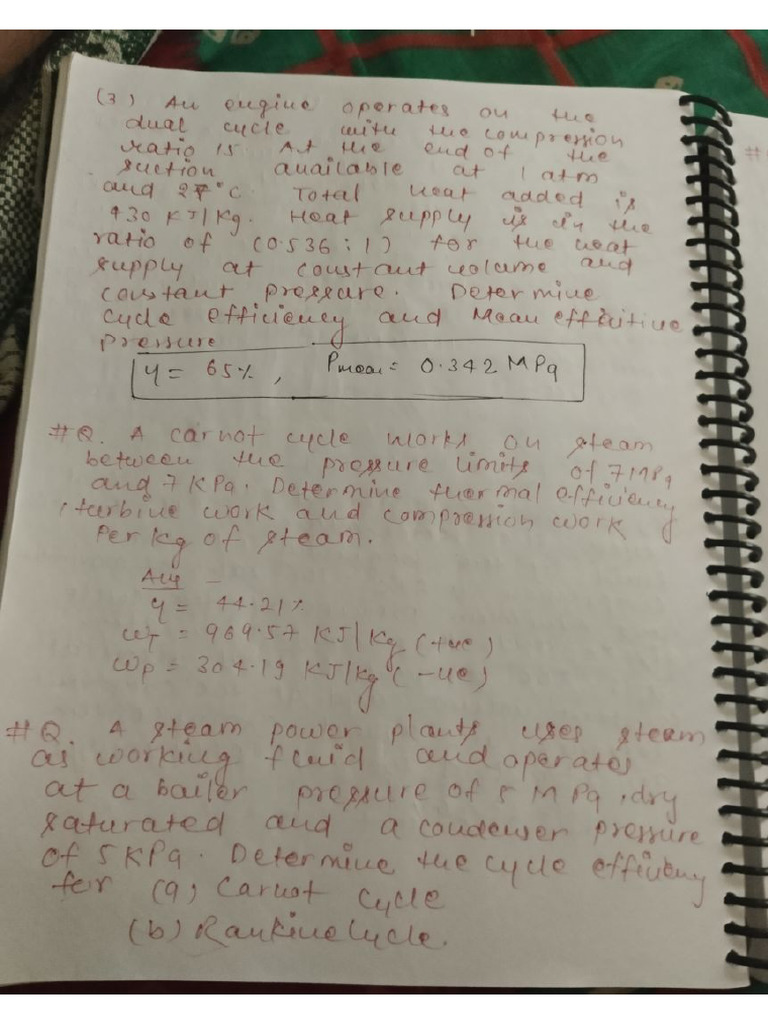 (3) An engine operates on the
dual cycle with the compression
ratio 15. At the end of the
suction available at 1 atm
and 27°C. Total heat added is
930 KJ/Kg. Heat supply is in the
ratio of (0.536:1) for the heat
supply at constant volume and
constant pressure. Determine
cycle efficiency and Mean effective
pressure
η = 65%, Pmean = 0.342 MPa
#Q. A carnot cycle works on steam
between the pressure limits of 7MPa
and 7 KPa. Determine thermal efficiency
, turbine work and compression work
Per kg of steam.
Ans –
η = 44.21%
WT = 969.57 KJ/Kg (+ve)
WP = 304.19 KJ/Kg (-ve)
#Q. A steam power plants uses steam
as working fluid and operates
at a boiler pressure of 5 MPa, dry
saturated and a condenser pressure
of 5KPa. Determine the cycle efficiency
for (a) Carnot cycle
(b) Rankine Cycle.
#